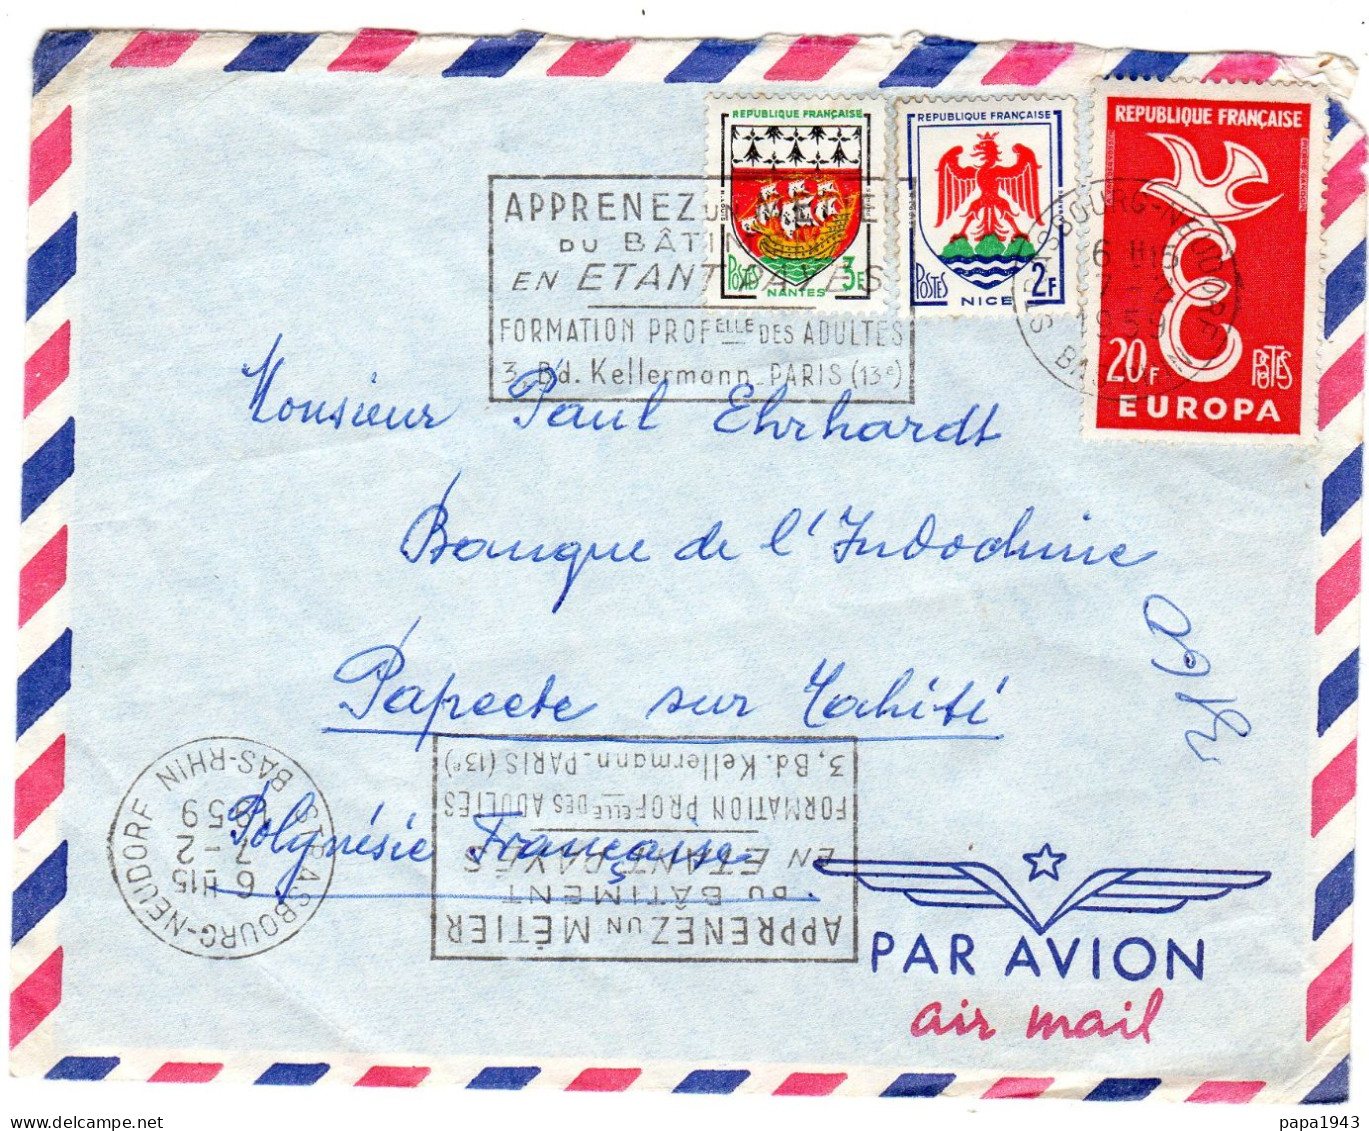 REPUBLIQUE FRANÇAISE
POSTES 3F
NANTES
REPUBLIQUE FRANÇAISE
POSTES 2F
NICE
REPUBLIQUE FRANÇAISE
20F POSTES
EUROPA
APPRENEZ UN
DU BÂTIMENT
EN ETANT PAYÉS
FORMATION PROFELLE DES ADULTES
3, Bd. Kellermann_PARIS (13e)
STRASBOURG-NEUDORF
6 H15
7 - 2
1959
BAS-RHIN
Monsieur Paul Ehrhardt
Banque de l'Indochine
Papeete sur Tahiti
Polynésie Française
STRASBOURG-NEUDORF
6 H15
7 - 2
1959
BAS-RHIN
APPRENEZ UN MÉTIER
DU BÂTIMENT
EN ETANT PAYÉS
FORMATION PROFELLE DES ADULTES
3, Bd. Kellermann_PARIS (13e)
PAR AVION
air mail
www.delcampe.net
papa1943